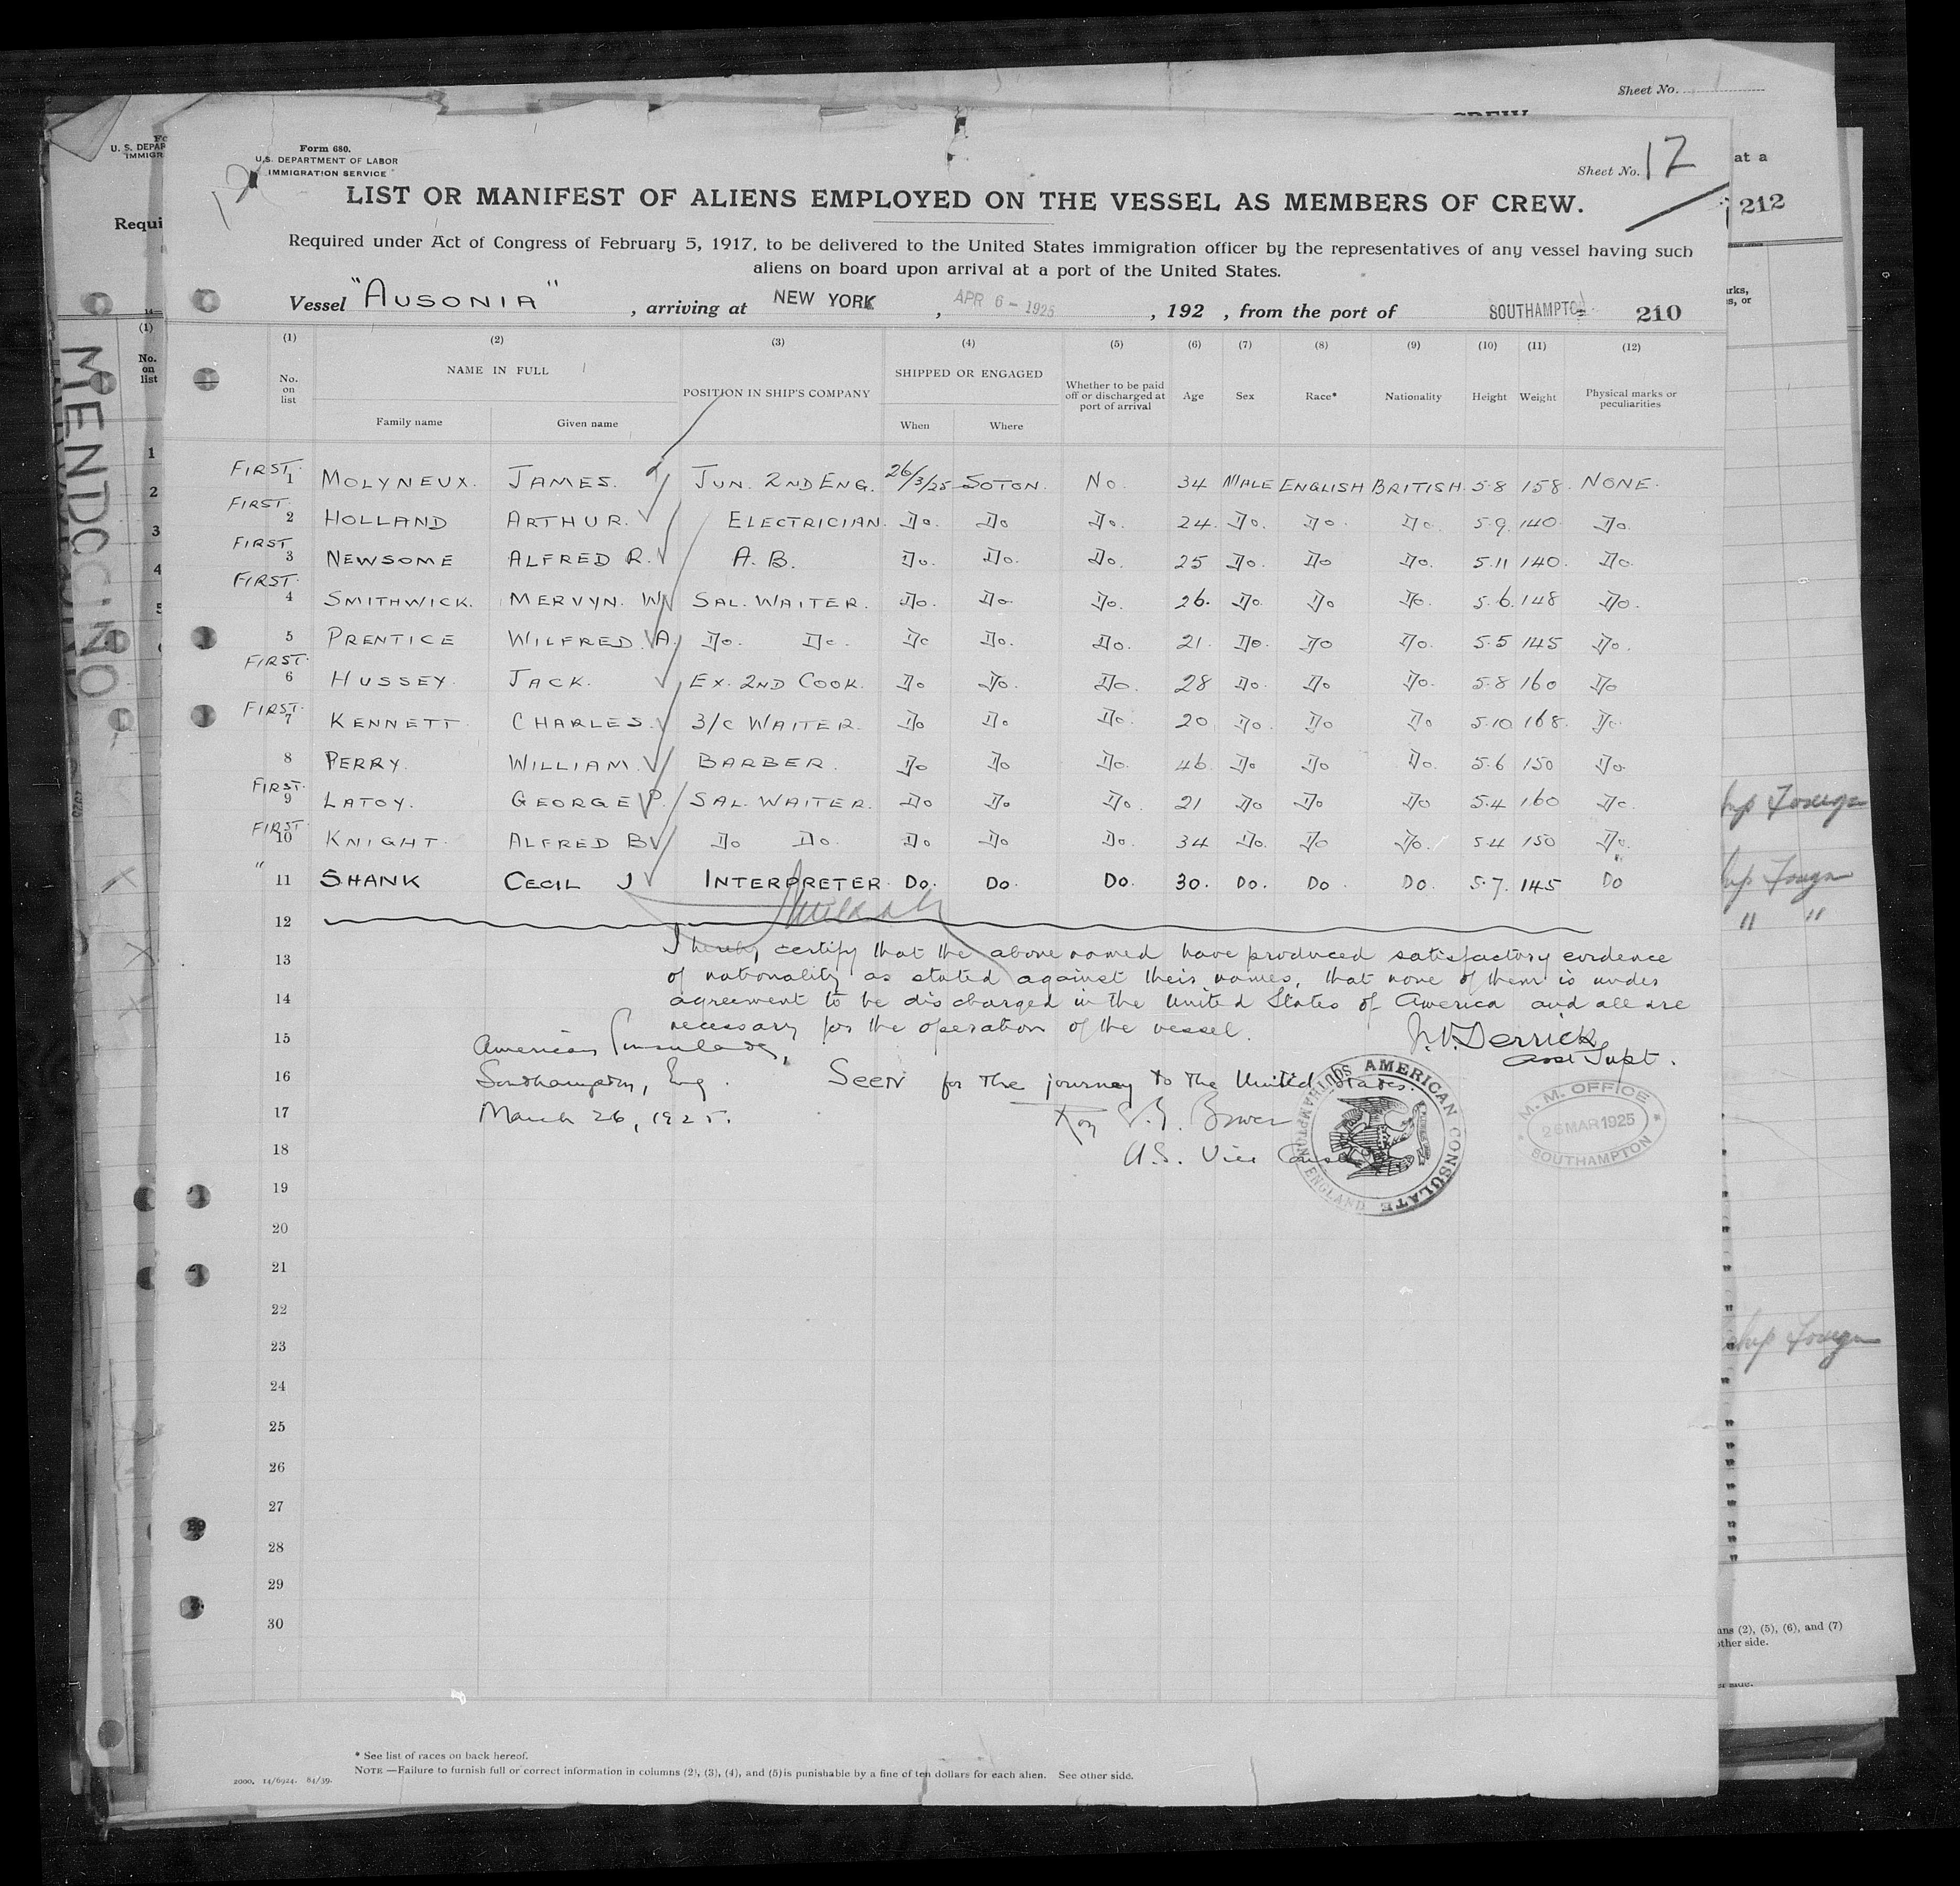 Sheet No.
at a
212
Form 680.
U.S. DEPARTMENT OF LABOR
IMMIGRATION SERVICE
Sheet No. 17
LIST OR MANIFEST OF ALIENS EMPLOYED ON THE VESSEL AS MEMBERS OF CREW.
Required under Act of Congress of February 5, 1917, to be delivered to the United States immigration officer by the representatives of any vessel having such
aliens on board upon arrival at a port of the United States.
Vessel "AUSONIA", arriving at NEW YORK, APR 6 - 1925, 192 , from the port of SOUTHAMPTON 210
(1) (2) (3) (4) (5) (6) (7) (8) (9) (10) (11) (12)
No. on list NAME IN FULL POSITION IN SHIP'S COMPANY SHIPPED OR ENGAGED Whether to be paid off or discharged at port of arrival Age Sex Race* Nationality Height Weight Physical marks or peculiarities
Family name Given name When Where
FIRST. 1 MOLYNEUX. JAMES. JUN. 2ND ENG. 26/3/25 SOTON. NO. 34 MALE ENGLISH BRITISH. 5.8 158. NONE.
FIRST. 2 HOLLAND ARTHUR. ELECTRICIAN. Do. Do Do. 24. Do. Do. Do. 5.9. 140. Do.
FIRST 3 NEWSOME ALFRED R. A.B. Do. Do. Do. 25 Do. Do Do. 5.11 140. Do.
FIRST. 4 SMITHWICK. MERVYN. W. SAL. WAITER. Do. Do. Do. 26. Do. Do Do. 5.6. 148 Do.
5 PRENTICE WILFRED. A. Do. Do. Do Do. Do. 21. Do. Do Do. 5.5 145 Do.
FIRST. 6 HUSSEY. JACK. EX. 2ND COOK. Do Do. Do. 28 Do. Do Do. 5.8 160 Do
FIRST. 7 KENNETT. CHARLES. 3/C WAITER. Do Do. Do. 20 Do. Do Do 5.10 168. Do.
8 PERRY. WILLIAM. BARBER. Do Do Do. 46 Do Do Do. 5.6 150 Do.
FIRST. 9 LATOY. GEORGE P. SAL. WAITER. Do Do Do. 21 Do Do Do 5.4 160 Do.
FIRST 10 KNIGHT. ALFRED B Do Do. Do Do Do. 34 Do. Do Do. 5.4 150 Do.
" 11 SHANK CECIL J INTERPRETER. DO. DO. DO. 30. DO. DO. DO. 5.7. 145 DO
12
13 I hereby certify that the above named have produced satisfactory evidence
of nationality as stated against their names, that none of them is under
14 agreement to be discharged in the United States of America and all are
necessary for the operation of the vessel.
15 American Consulate, Derrick
Asst Supt.
16 Southampton, Eng. Seen for the journey to the United States.
17 March 26, 1925.
18 U.S. Vice Consul
AMERICAN CONSULATE SOUTHAMPTON ENGLAND
M. M. OFFICE
26 MAR 1925
SOUTHAMPTON
19
20
21
22
23
24
25
26
27
28
29
30
* See list of races on back hereof.
NOTE —Failure to furnish full or correct information in columns (2), (3), (4), and (5) is punishable by a fine of ten dollars for each alien. See other side.
2000. 14/6924. 84/39.
MENDOCINO